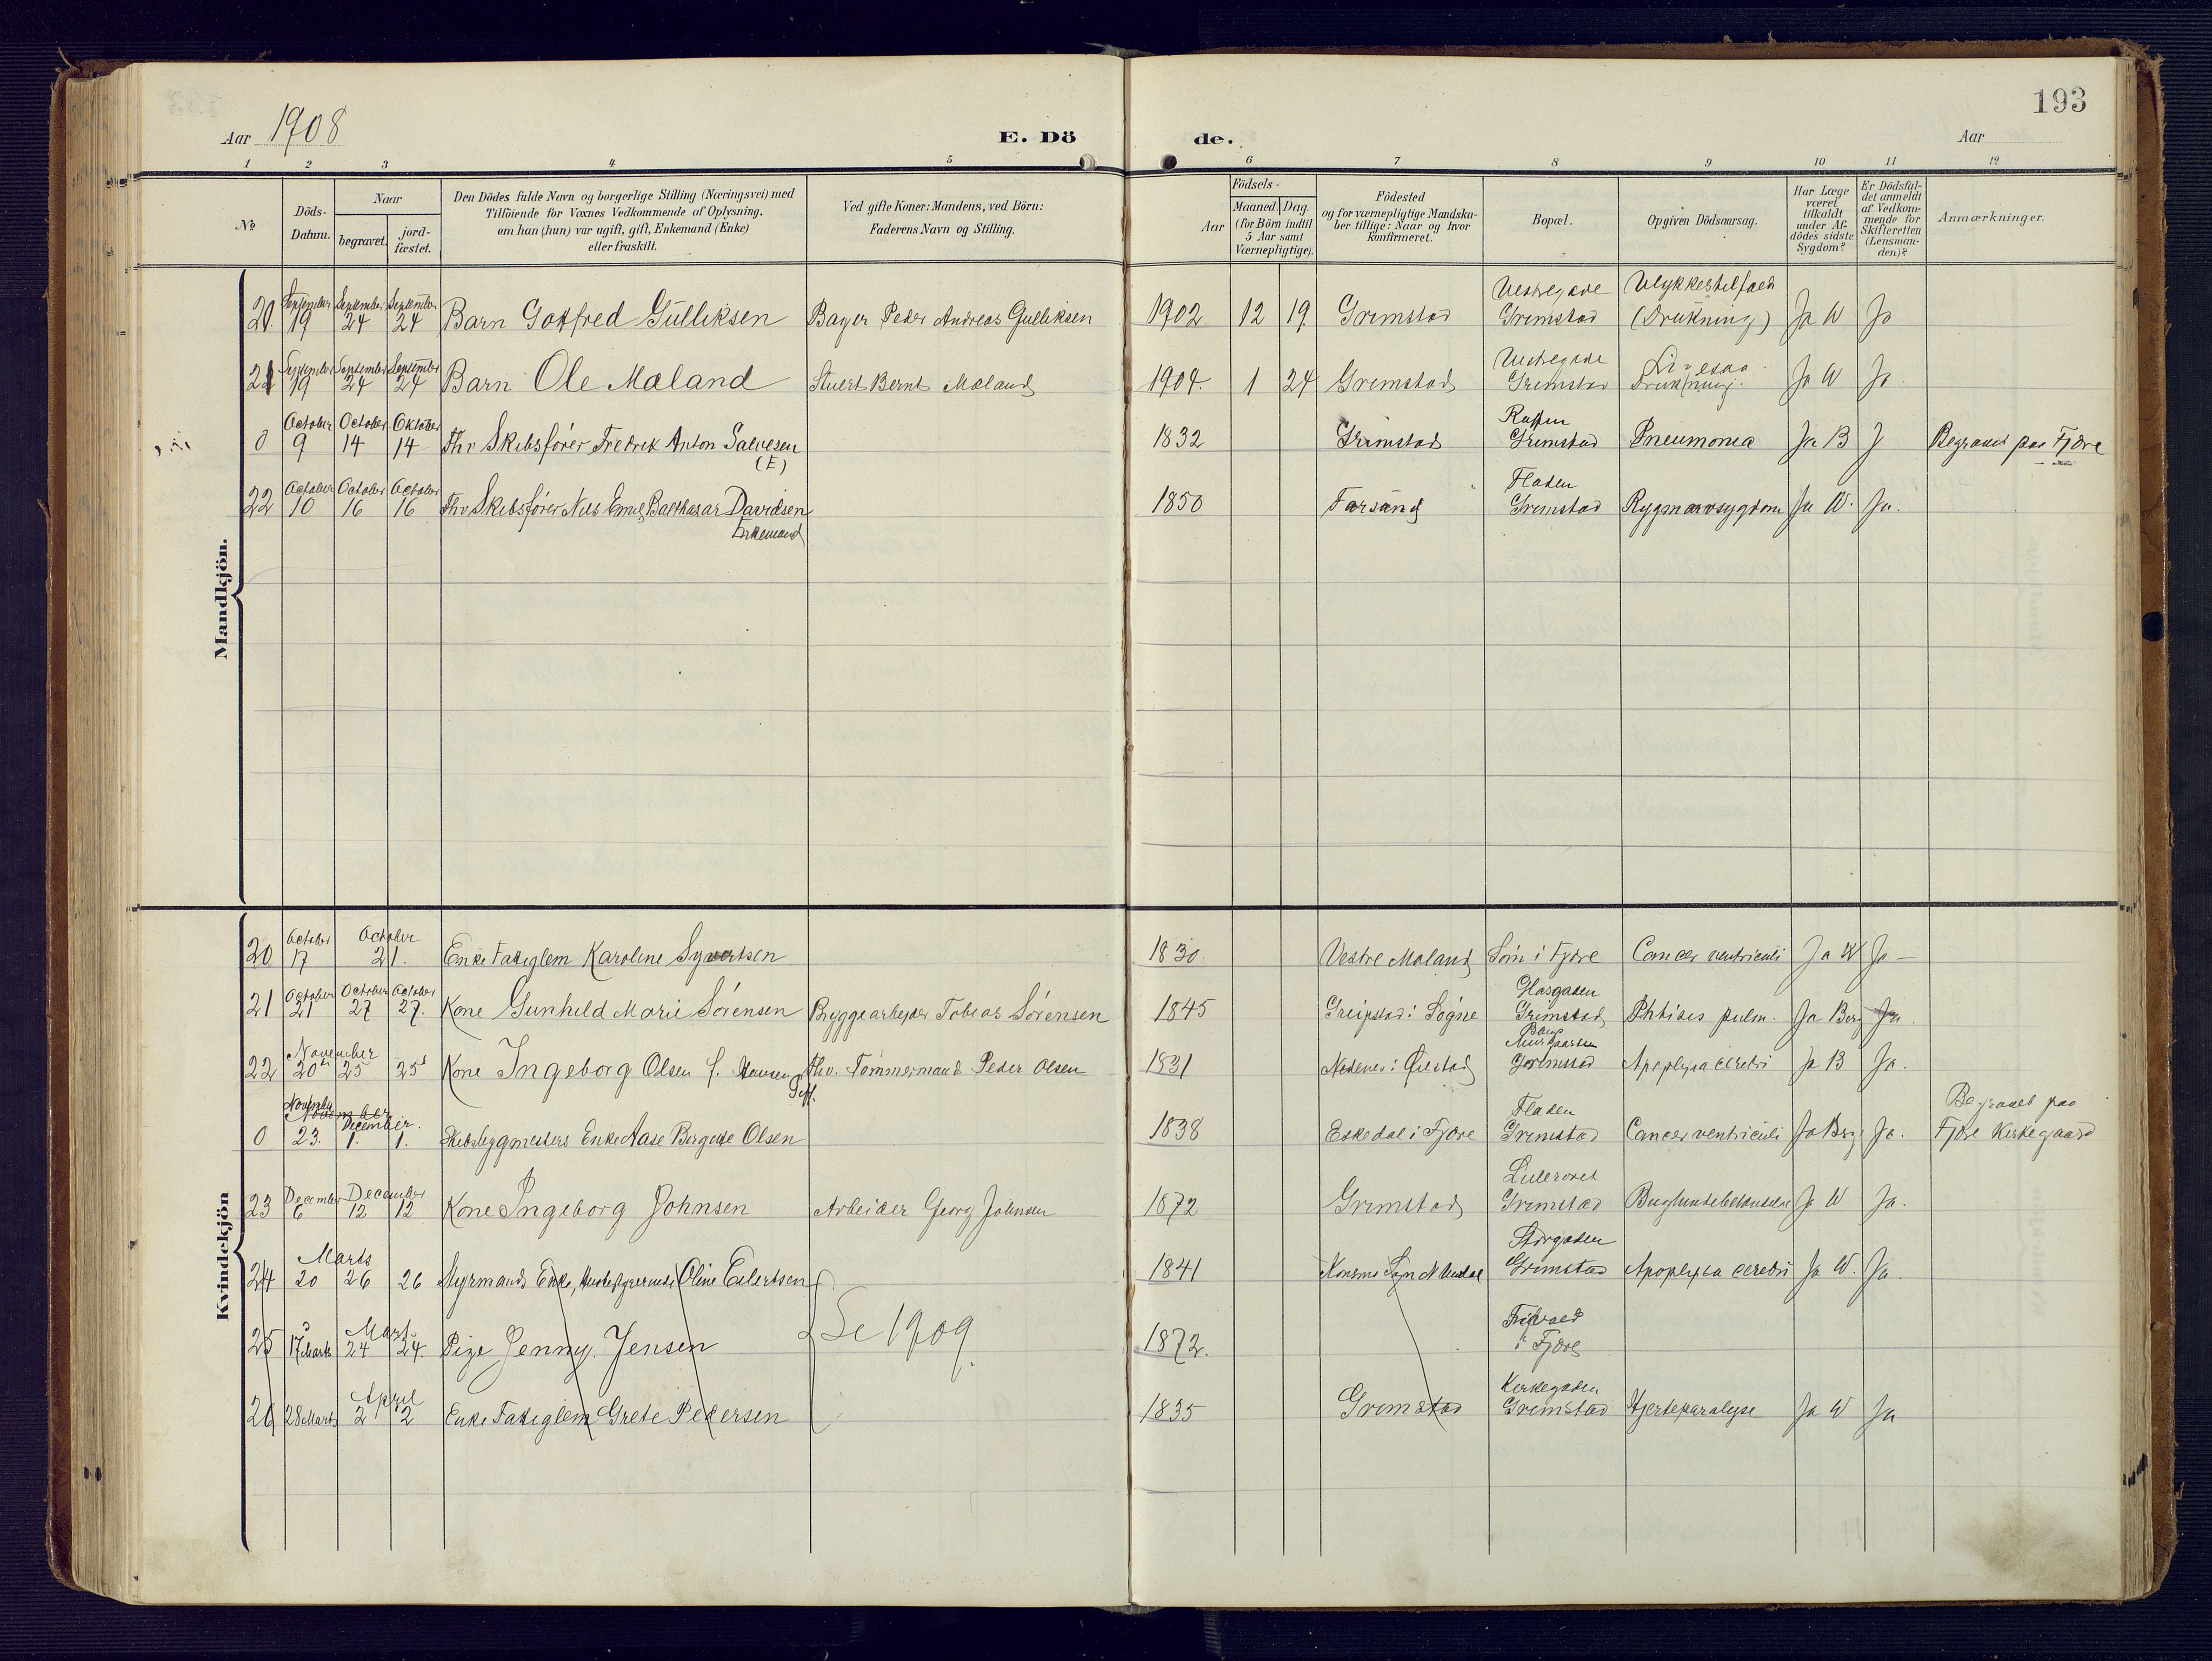 193
Aar 1908
E. Dö
de.
Aar
1 2 3 4 5 6 7 8 9 10 11 12
No
Döds-Datum.
Naar
begravet.
jord-fæstet.
Den Dödes fulde Navn og borgerlige Stilling (Næringsvei) med
Tilföiende for Voxnes Vedkommende af Oplysning,
om han (hun) var ugift, gift, Enkemand (Enke)
eller fraskilt.
Ved gifte Koner: Mandens, ved Börn:
Faderens Navn og Stilling.
Aar
Födsels-
Maaned. Dag.
(for Börn indtil
5 Aar samt
Værnepligtige).
Födested
og for værnepligtige Mandska-
ber tillige: Naar og hvor
Konfirmeret.
Bopæl.
Opgiven Dödsaarsag.
Har Læge
været
tilkaldt
under Af-
dödes sidste
Sygdom?
Er Dödsfal-
det anmeldt
af Vedkom-
mende for
Skifteretten
(Lensman-
den)?
Anmærkninger.
Mandkjön.
September September September Vestregade Ulykkestilfæld
20. 19 24 24 Barn Gotfred Gulliksen Bager Peder Andreas Gulliksen 1902 12 19. Grimstad Grimstad (Drukning) Ja W Ja
September September September Vestregade
21 19 24 24 Barn Ole Maland Stuert Bernt Maland 1904. 1 24 Grimstad Grimstad Drukning. Ja W Ja
October October Oktober
0 9 14 14 Fhv Skibsfører Fredrik Anton Salvesen 1832 Grimstad Grimstad Pneumonia Ja B J Begravet paa Fjære
(E)
October October October Fladen
22 10 16 16 Fhv Skibsfører Nils Emil Balthasar Davidsen 1850 Farsund Grimstad Rygmarvsygdom Ja W. Ja.
Enkemand
Kvindekjön
October October
20 17 21. Enke Fattiglem Karoline Syvertsen 1830. Vestre Moland Søm i Fjære Cancer ventriculi Ja W Ja
October October October
21 21 27 27. Kone Gunhild Marie Sørensen Bryggearbeider Tobias Sørensen 1845 Greipstad i Søgne Grimstad Phtisis pulm. Ja Berg Ja
November
22 20 25 25 Kone Ingeborg Olsen f. Hansen Fhv. Tømmermand Peder Olsen 1831 Nedenes i Øiestad Grimstad Apoplexia cerebri Ja B Ja.
Gift.
November December. Fladen Begravet paa
0 23. 1. 1. Skibsbygmesters Enke Aase Bergitte Olsen 1838 Eskedal i Fjære Grimstad Cancer ventriculi Ja Berg Ja. Fjære Kirkegaard
December December
23 6 12 12 Kone Ingeborg Johnsen Arbeider Georg Johnsen 1872 Grimstad Grimstad Bughindebetændelse Ja W Ja.
Marts Storgaden
24 20 26 26 Styrmands Enke, Oline Eilertsen 1841 Grimstad Apoplexia cerebri Ja W. Ja.
Marts
25 17 Marts 24 24. Pige Jenny Jensen Se 1909. 1872. i Fjære
April Kirkegaden
26 28 Marts 2 2 Enke Fattiglem Grete Pedersen 1835 Grimstad Grimstad Hjerteparalyse Ja W Ja